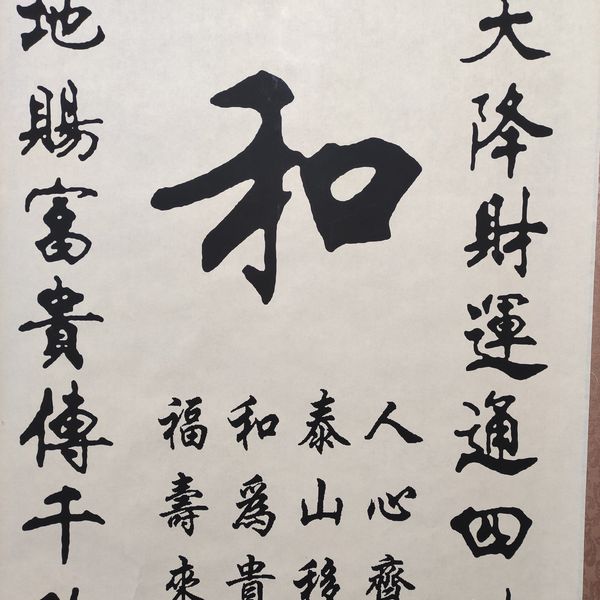 大降財運通四
和
人心齊
泰山移
和爲貴
福壽來
地賜富貴傳千